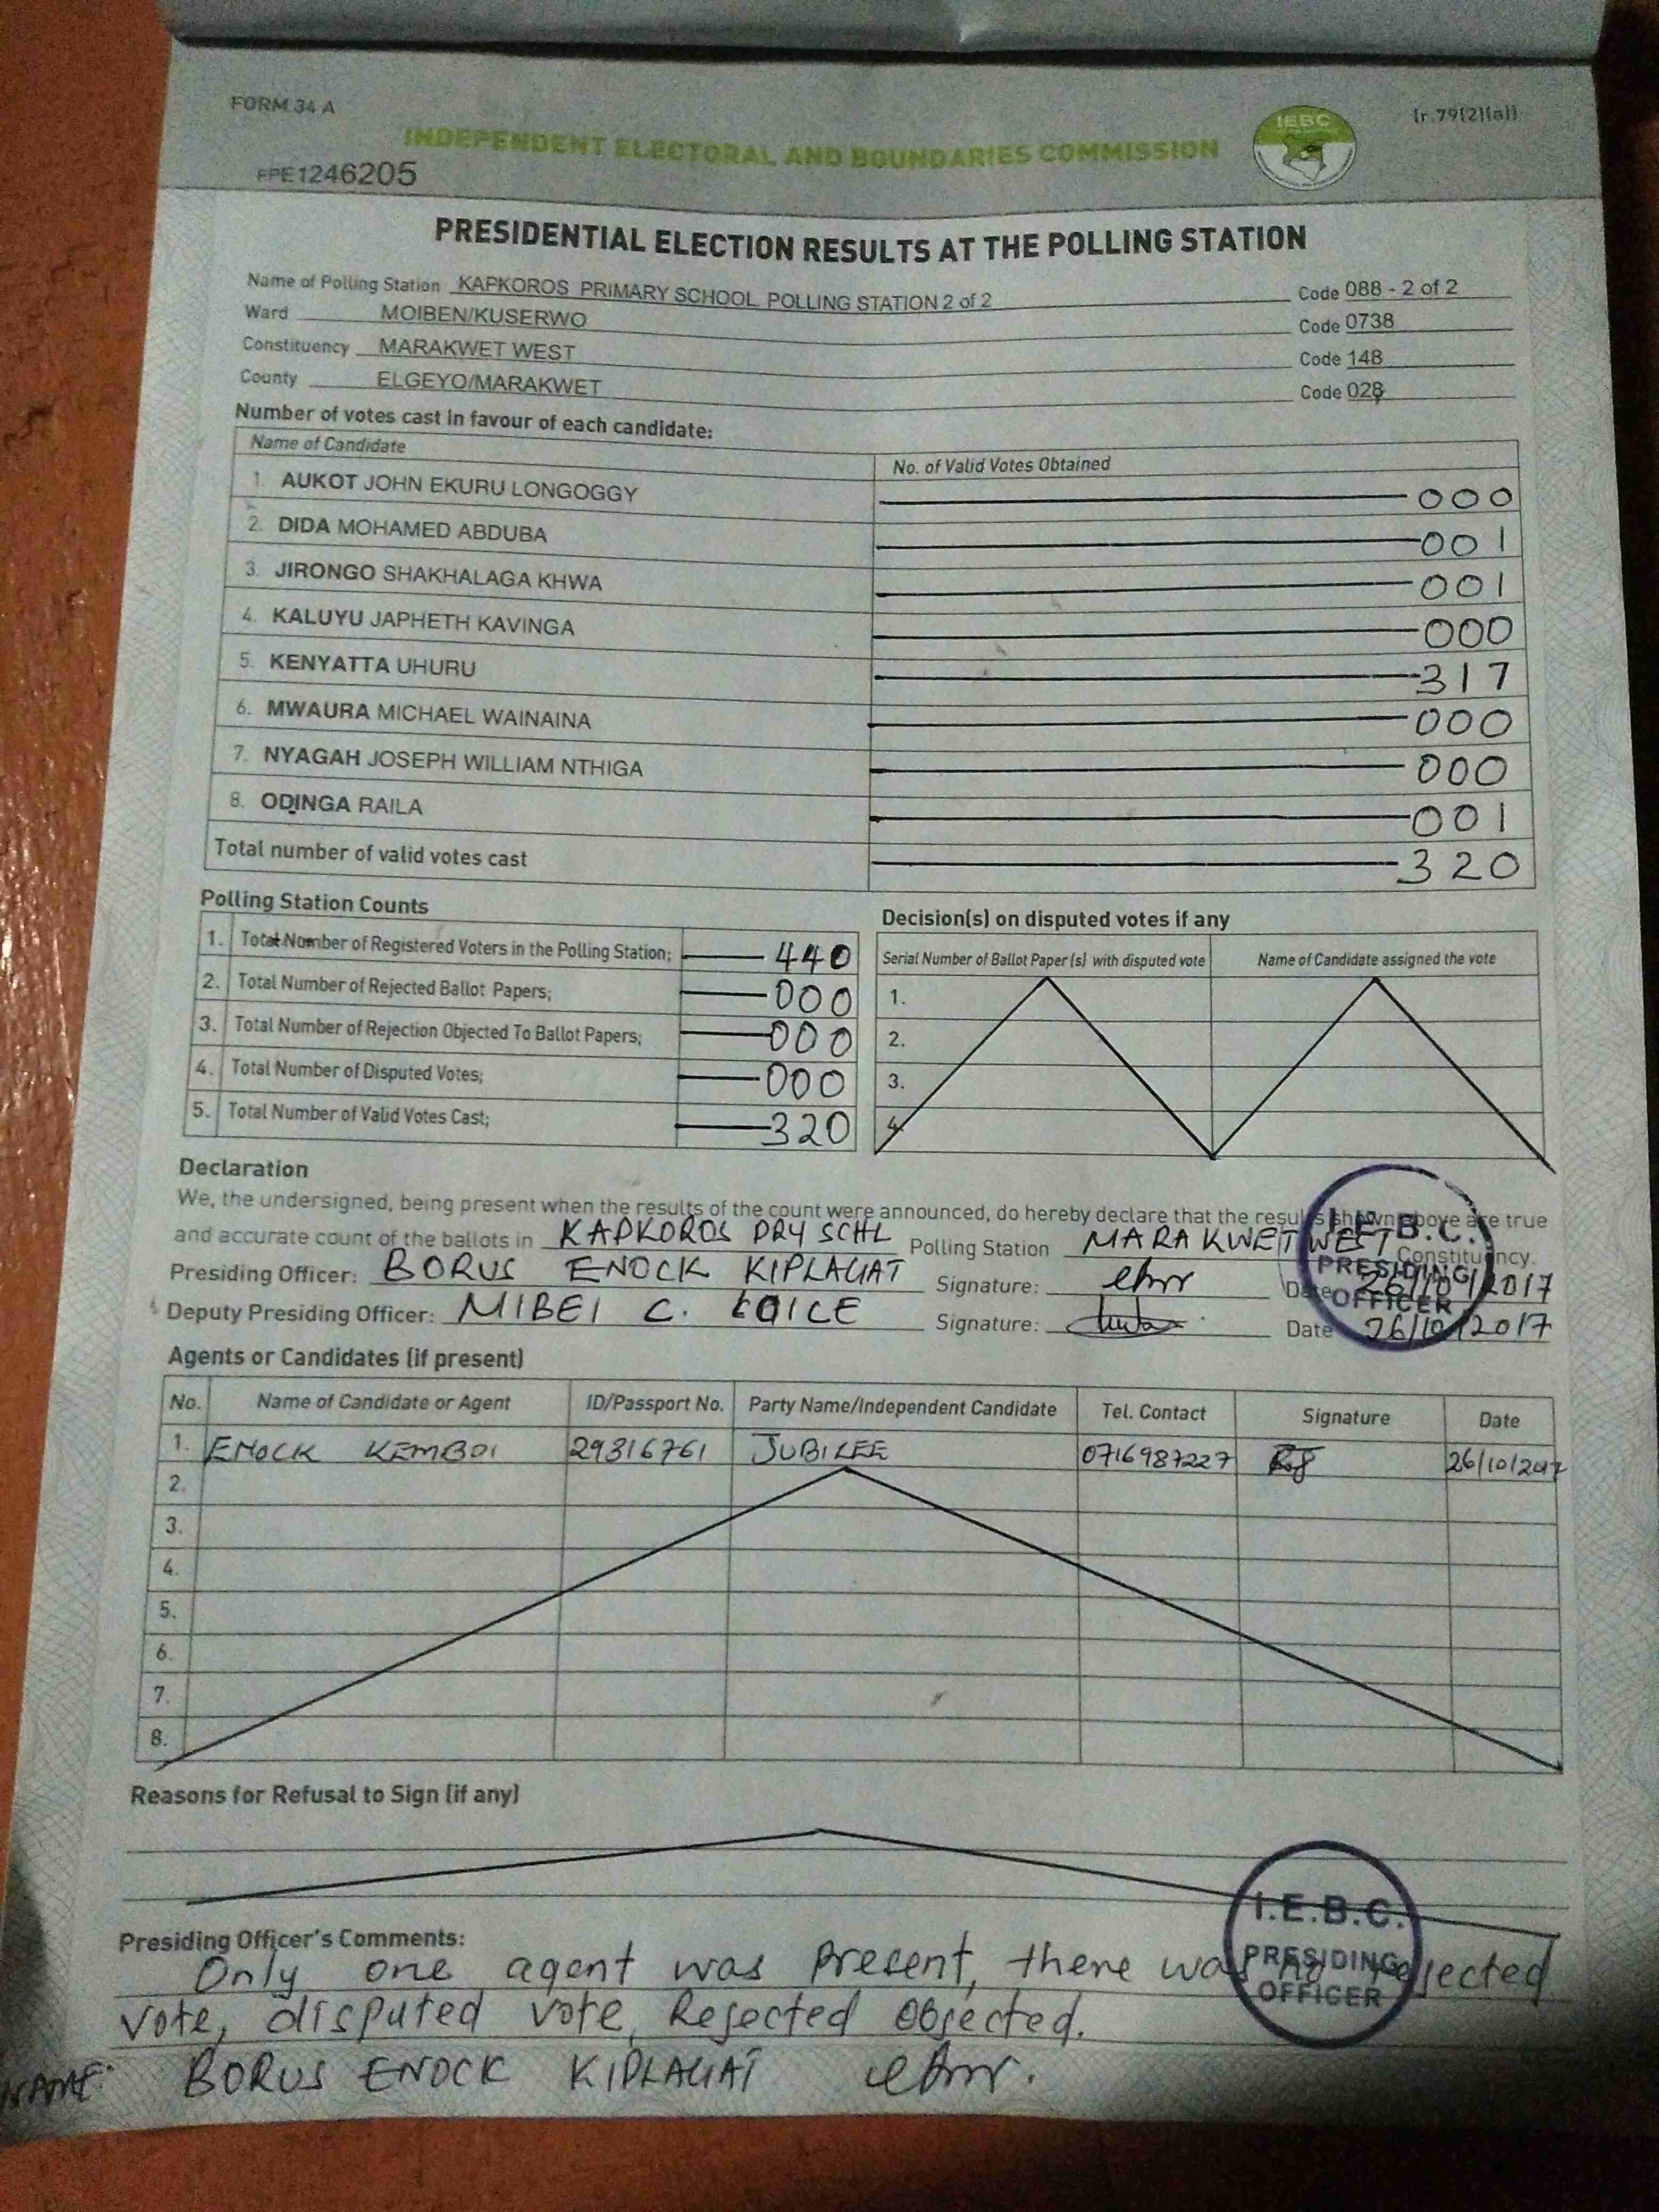 FORM 34 A
(r.79(2)(a))
INDEPENDENT ELECTORAL AND BOUNDARIES COMMISSION
IEBC
PPE1246205
PRESIDENTIAL ELECTION RESULTS AT THE POLLING STATION
Name of Polling Station KAPKOROS PRIMARY SCHOOL POLLING STATION 2 of 2 Code 088 - 2 of 2
Ward MOIBEN/KUSERWO Code 0738
Constituency MARAKWET WEST Code 148
County ELGEYO/MARAKWET Code 028
Number of votes cast in favour of each candidate:
Name of Candidate No. of Valid Votes Obtained
1. AUKOT JOHN EKURU LONGOGGY 000
2. DIDA MOHAMED ABDUBA 001
3. JIRONGO SHAKHALAGA KHWA 001
4. KALUYU JAPHETH KAVINGA 000
5. KENYATTA UHURU 317
6. MWAURA MICHAEL WAINAINA 000
7. NYAGAH JOSEPH WILLIAM NTHIGA 000
8. ODINGA RAILA 001
Total number of valid votes cast 320
Polling Station Counts
1. Total Number of Registered Voters in the Polling Station; 440
2. Total Number of Rejected Ballot Papers; 000
3. Total Number of Rejection Objected To Ballot Papers; 000
4. Total Number of Disputed Votes; 000
5. Total Number of Valid Votes Cast; 320
Decision(s) on disputed votes if any
Serial Number of Ballot Paper(s) with disputed vote Name of Candidate assigned the vote
1.
2.
3.
4.
Declaration
We, the undersigned, being present when the results of the count were announced, do hereby declare that the results shown above are true
and accurate count of the ballots in KAPKOROS PRY SCHL Polling Station MARAKWET WEST Constituency.
Presiding Officer: BORUS ENOCK KIPLAGAT Signature: Date 26/10/2017
Deputy Presiding Officer: MIBEI C. LOICE Signature: Date 26/10/2017
I.E.B.C.
PRESIDING
OFFICER
Agents or Candidates (if present)
No. Name of Candidate or Agent ID/Passport No. Party Name/Independent Candidate Tel. Contact Signature Date
1. ENOCK KEMBOI 29316761 JUBILEE 0716987227 26/10/2017
2.
3.
4.
5.
6.
7.
8.
Reasons for Refusal to Sign (if any)
I.E.B.C.
PRESIDING
OFFICER
Presiding Officer's Comments:
Only one agent was present, there was no rejected
vote, disputed vote, Rejected objected.
NAME: BORUS ENOCK KIPLAGAT